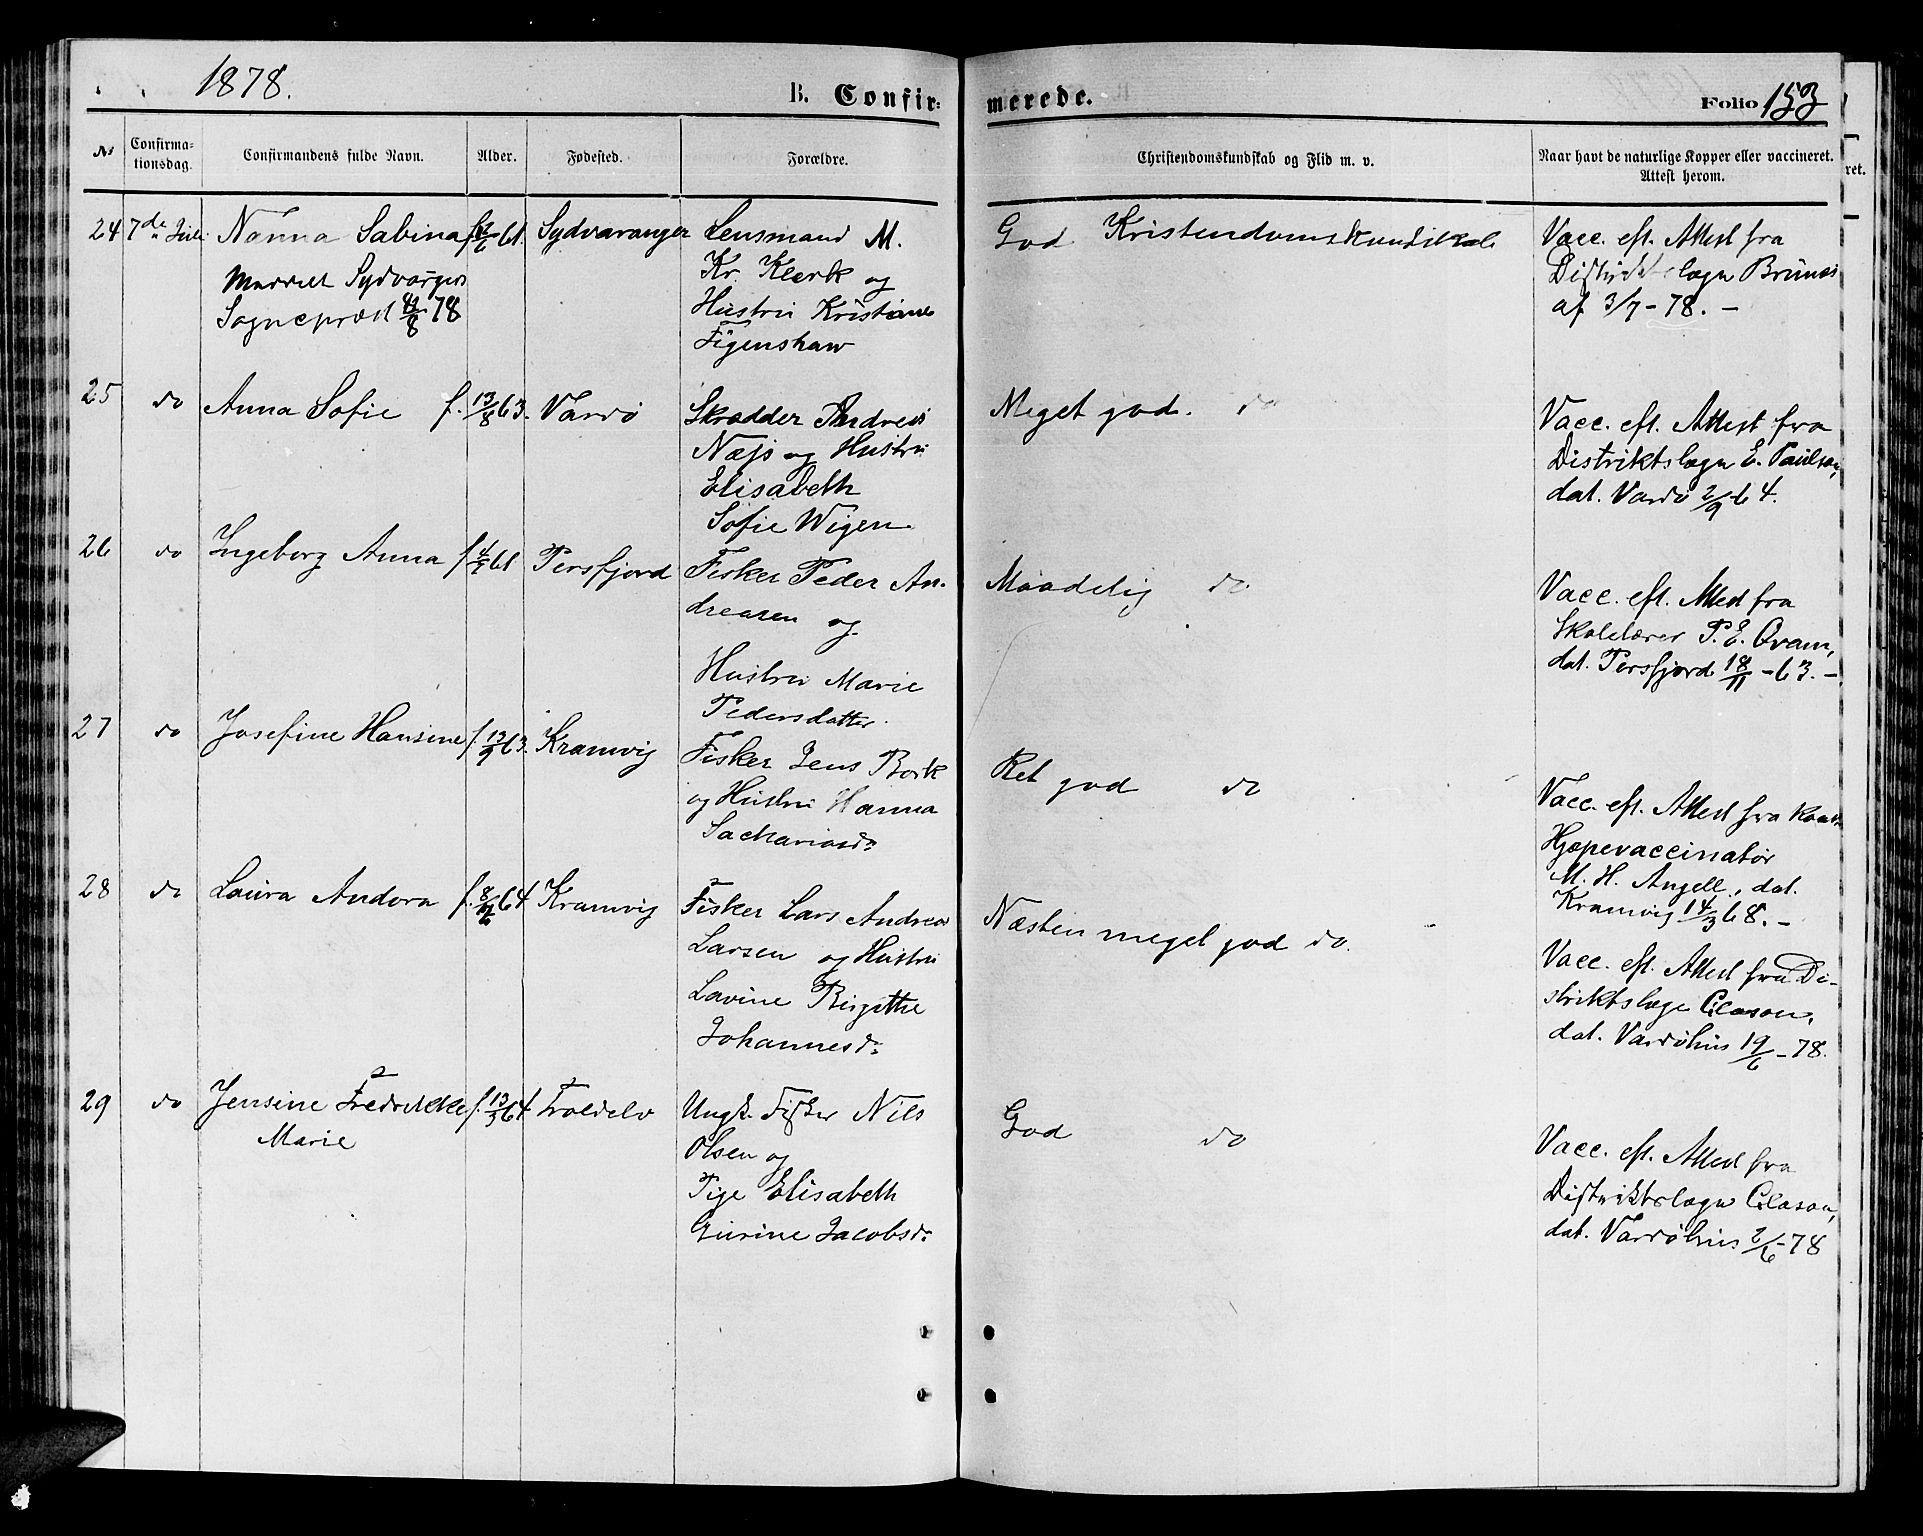 1878.
B. Confir=
merede.
Folio 153
No
Confirma-
tionsdag.
Confirmandens fulde Navn.
Alder.
Fødested.
Forældre.
Christendomskundskab og Flid m. v.
Naar havt de naturlige Kopper eller vaccineret.
Attest herom.
ret.
24 7de Juli
Nanna Sabina
Meddelt Sydvarger
Sognepræst 8 78
61.
Sydvaranger
Lensmand M.
Kr. Klerk og
Hustru Kristiane
Figenshaw
God Kristendomskundskab
Vacc. eft. Attest fra
Distriktslægn
af 3/7 - 78. -
25
do
Anna Sofie
f. 13/8 63.
Vardö
Skrædder Andreas
Næjs og Hustru
Elisabeth
Sofie Wigen
Meget god. do
Vacc. eft. Attest fra
Distriktslægn E. Paulson,
dat. Vardö 2/9 64.
26
do
Ingeborg Anna
f. 61
Persfjord
Fisker Peder An-
dreasen og
Hustru Marie
Pedersdatter.
Maadelig do
Vacc. eft. Attest fra
Skolelærer P. E. Qvam,
dat. Persfjord 18/11 - 63. -
27
do
Josefine Hansine
f. 13/9 63.
Kramvig
Fisker Jens Bork
og Hustru Hanna
Sachariasdr
Ret god do
Vacc. eft. Attest fra
Hjæpevaccinatör
M. H. Angell, dat.
Kramvig 14/3 68. -
28
do
Laura Andora
f. 8 64
Kramvig
Fisker Lars Andreas
Larsen og Hustru
Lavine Birgitte
Johannesdr
Næsten meget god do.
Vacc. eft. Attest fra Di-
striktslæge Clason,
dat. Vardöhus 19/6 - 78.
29
do
Jensine Fredrikke
Marie
f. 13/3 64
Troldelv
Ungk. Fisker Nils
Olsen og
Pige Elisabeth
Gurine Jacobsdr
God do
Vacc. eft. Attest fra
Distriktslægn Clason,
dat. Vardöhus 2/6 - 78